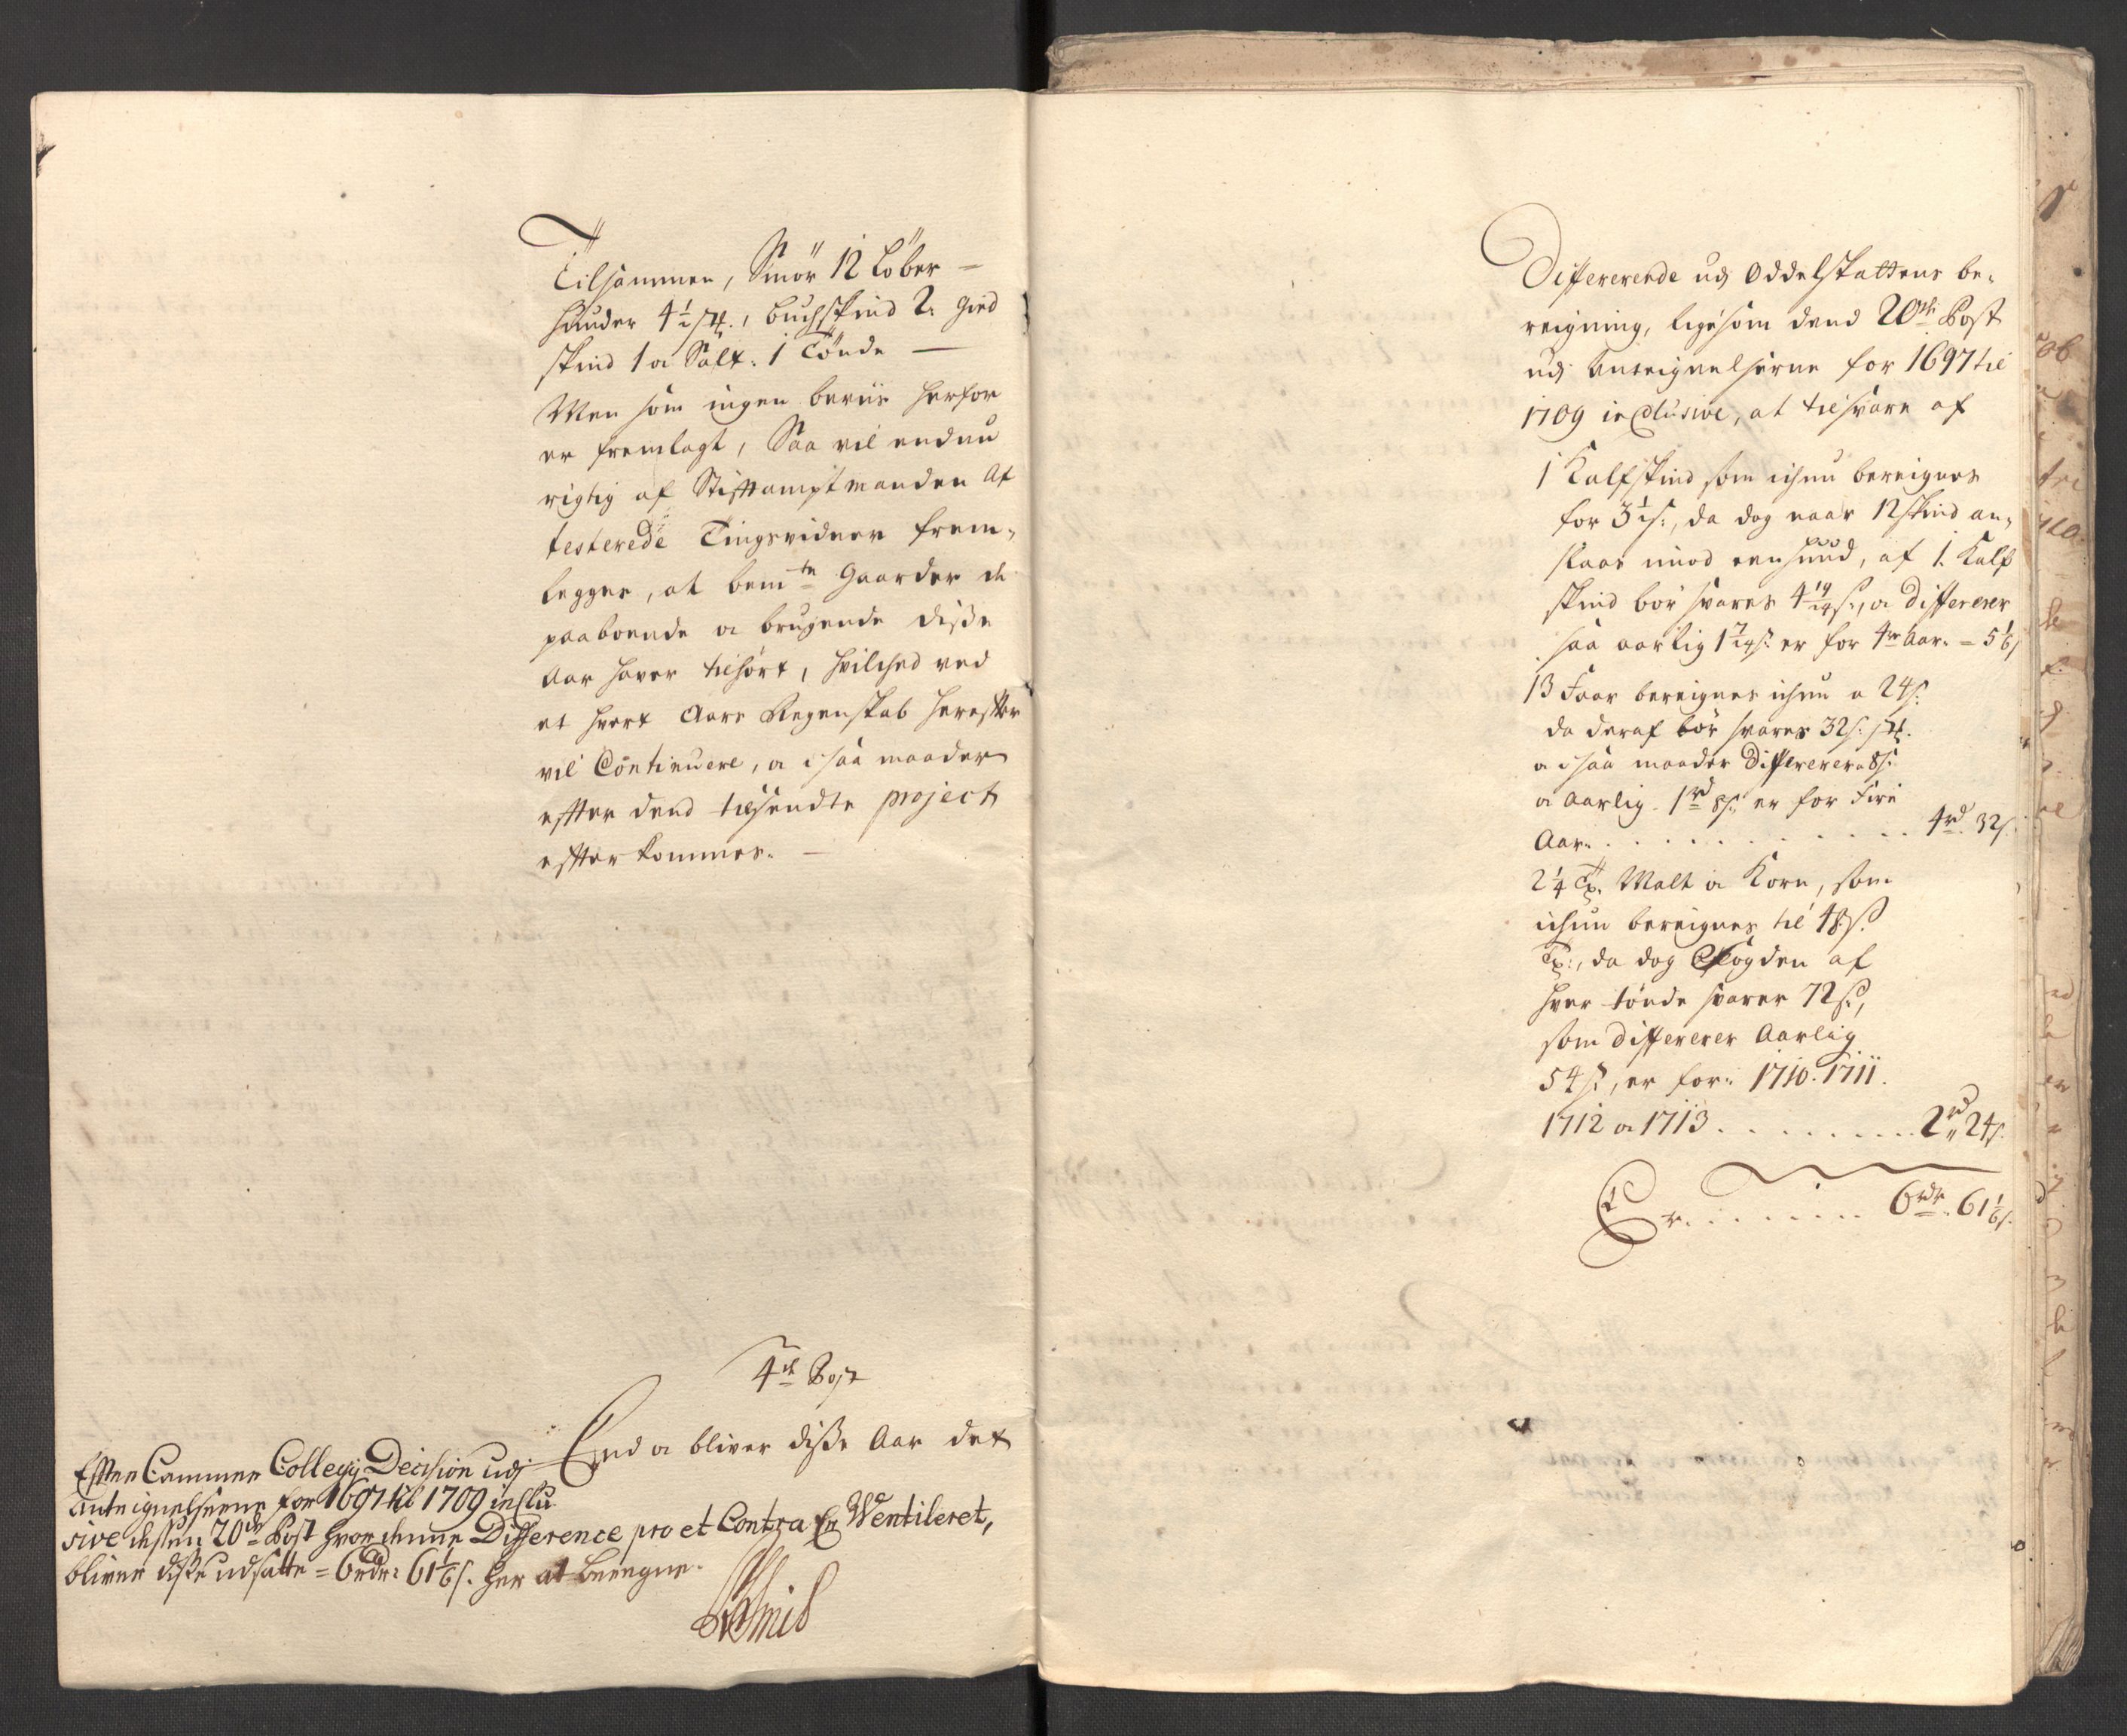 Tilsammen, Smør 12 Løber –
Huuder 4½ st., buchskind 2. gied
skind 1 a Salt: 1 Tønde –
Men som ingen beviis herfor
er fremlagt, Saa vil endnu
rigtig af Stiftamptmanden At
testerede Tingsvidner frem-
legges, at bemte Gaarder de
paaboende a brugende disse
Aar haver tilhørt, hvilched ved
et hvert Aars Regenskab herefter
vil Continuere, a i saa maader
efter dend tilsendte project
efterkommes. –
4de Post
End a bliver disse Aar det
Efter Cammer Collegij Decision udj
Anteignelserne for 1697 til 1709 inclu
sive dessen 20de Post hvor denne Difference pro et Contra er Ventileret,
bliver disse udsatte = 6rdr: 61⅙ s. her at beregne.
Differerende udj Oddelskattens be-
reigning, ligesom dend 20de Post
udj Anteignelserne for 1697 til
1709 inclusive, at tilsvare af
1 Kalfskind som ichun bereignes
for 3½ s:, da dog naar 12 skind an-
slaaes imod een huud, af 1. Kalf
skind bør svares 4 19/24 s:, a differerer
saa aarlig 1 7/24 s: er for 4re Aar. = 5⅙ s
13 Faar bereignes ichun a 24 s:
da deraf bør svares 32 s. st.
a i saa maader Differerer a 8 s:
a Aarlig 1rd 8 s: er for Fire
Aar. . . . . . . . . . . . . 4rd. 32 s.
2¼ Tø. Malt a Korn, som
ichun bereignes til 48 s:
Tø:, da dog Fogden af
hver tønde svarer 72 s:,
som differerer Aarlig
54 s:, er for: 1710. 1711.
1712 a 1713 . . . . . . . . . 2rd 24 s.
Er. . . . . . . . 6rdr. 61⅙ s.